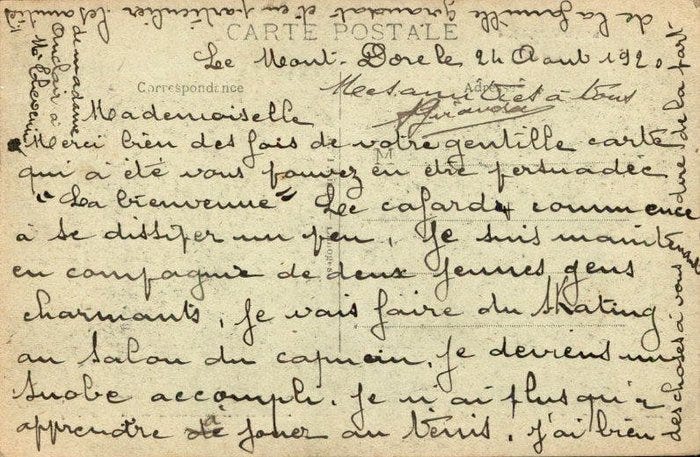 CARTE POSTALE
Correspondance
Le Mont-Dore le 24 Aout 1920
Mes amitiés à tous
Giraudat
Mademoiselle
Merci bien des fois de votre gentille carte
qui a été vous pouvez en être persuadée
"La bienvenue" Le cafard commence
à se dissiper un peu, Je suis maintenant
en compagnie de deux jeunes gens
charmants, je vais faire du skating
au salon du capucin, je deviens un
snobe accompli. Je n'ai plus qu'à
apprendre à jouer au tennis. J'ai bien
des choses à vous dire de la part
de la famille Giraudat et en particulier les amitiés
de madame
à